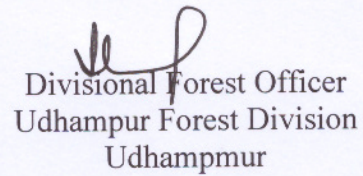 Divisional Forest Officer
Udhampur Forest Division
Udhampmur